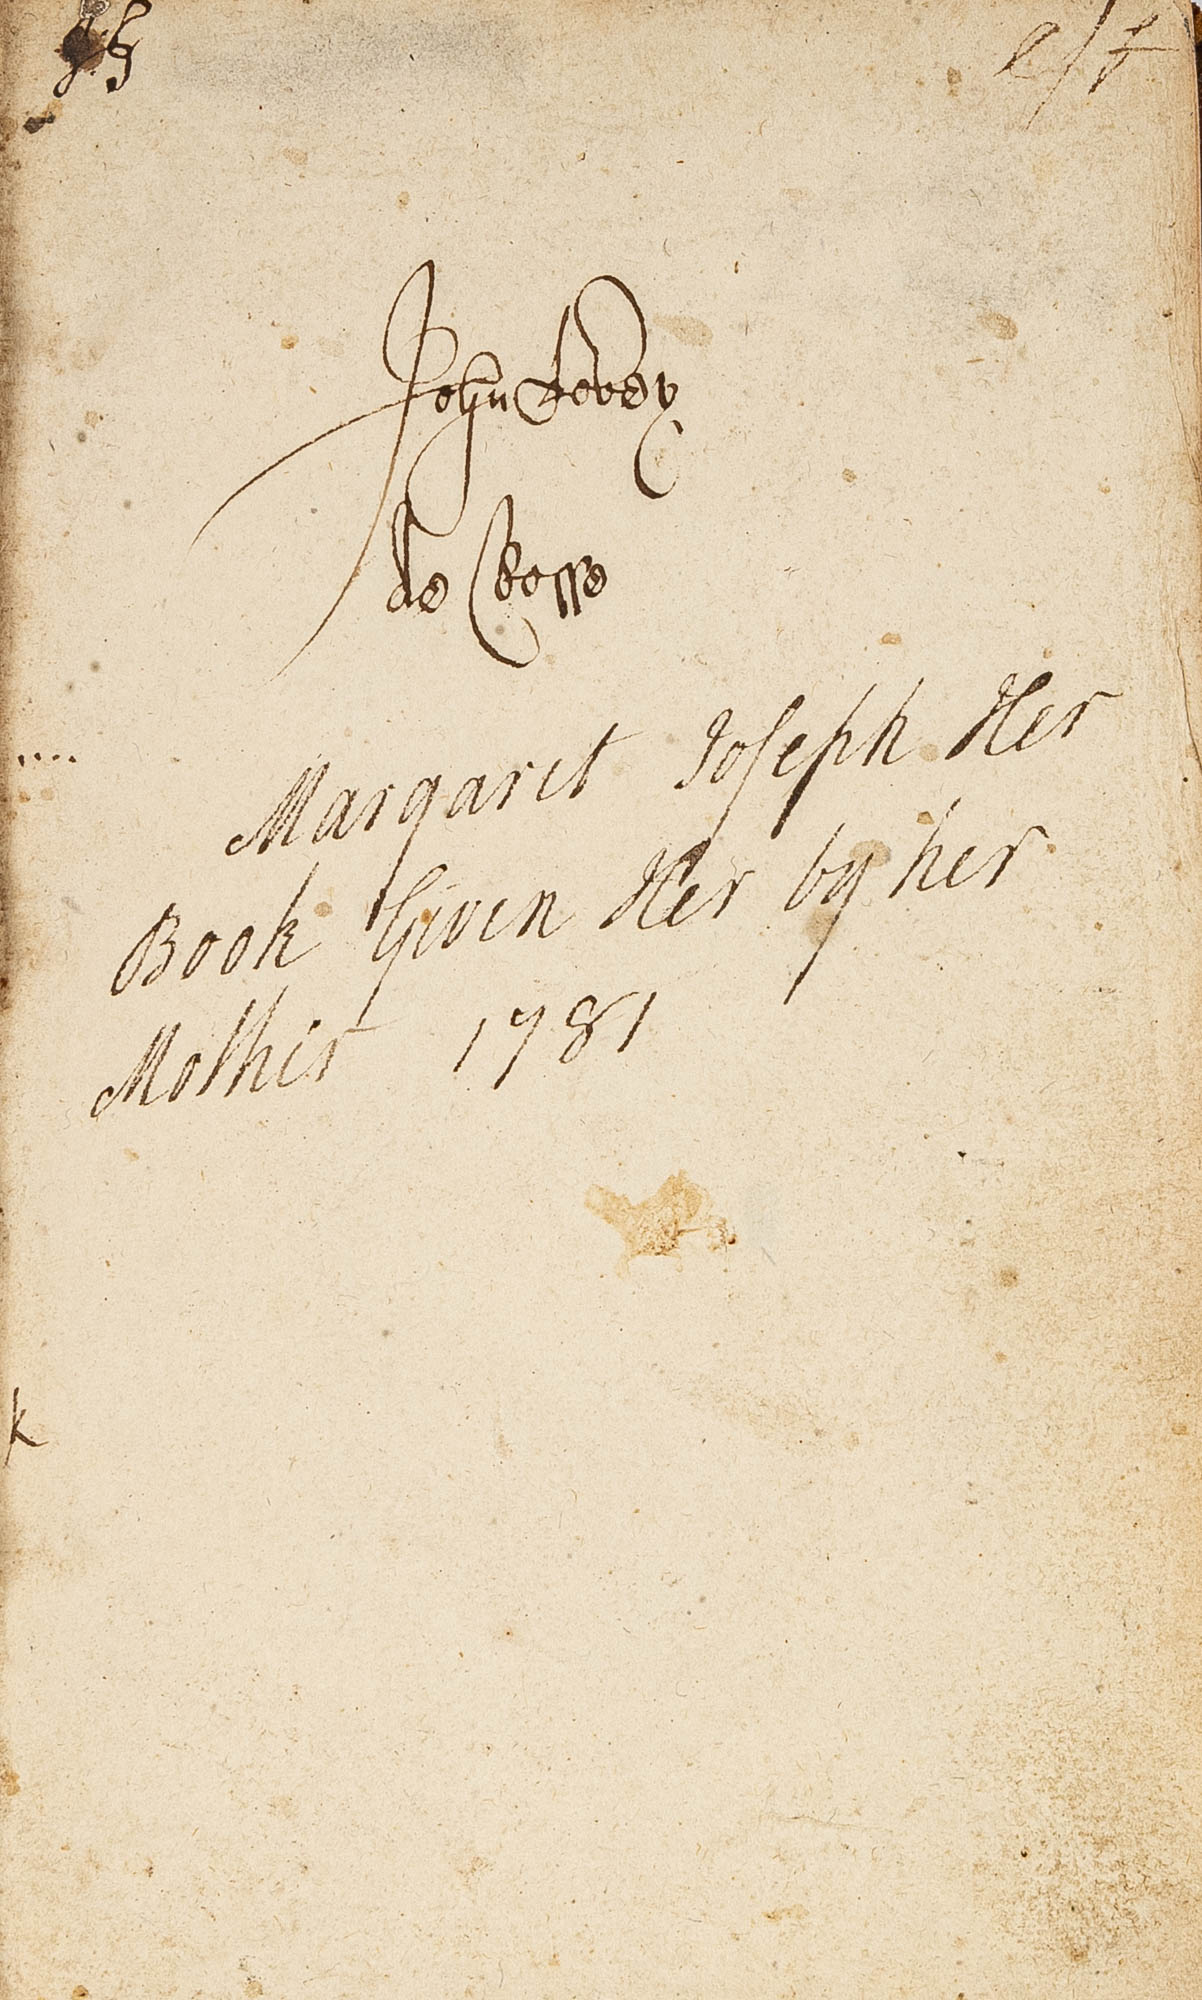 John Lovey
de Crosse
Margaret Joseph Her
Book Given Her by her
Mother 1781
k